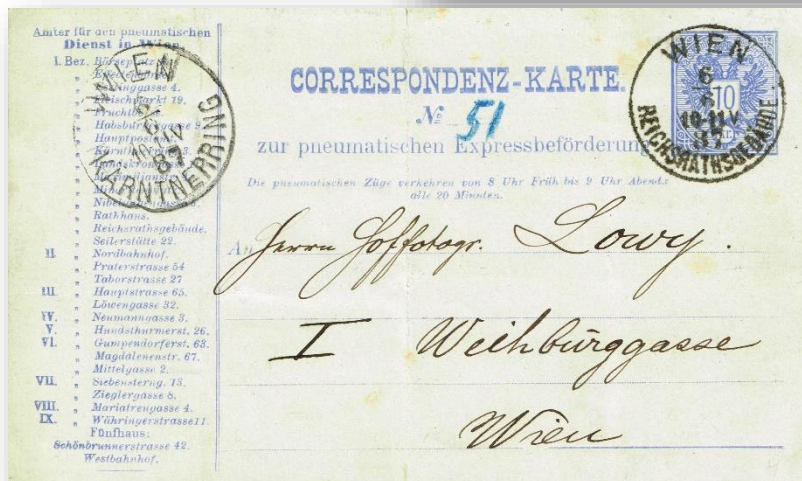 Ämter für den pneumatischen
Dienst in Wien.
I. Bez. Börseplatz
Fleischmarkt 19.
Habsburgergasse
Hauptpost
Rathhaus.
Reichsrathsgebäude.
Seilerstätte 22.
II. " Nordbahnhof.
" Praterstrasse 54
" Taborstrasse 27
III. " Hauptstrasse 65.
" Löwengasse 32.
IV. " Neumanngasse 3.
V. " Hundsthurmerst. 26.
VI. " Gumpendorferst. 63.
" Magdalenenstr. 67.
" Mittelgasse 2.
VII. " Siebensterng. 13.
" Zieglergasse 8.
VIII. " Mariatreugasse 4.
IX. " Währingerstrasse 11.
Fünfhaus:
Schönbrunnerstrasse 42.
Westbahnhof.
WIEN
KÄRNTNERRING
CORRESPONDENZ-KARTE.
No 51
zur pneumatischen Expressbeförderung
Die pneumatischen Züge verkehren von 8 Uhr Früh bis 9 Uhr Abends
alle 20 Minuten.
WIEN
6
6
10-11V
87
REICHSRATHSGEBÄUDE.
10
An Herrn Hoffotogr. Lowy.
I Weihburggasse
Wien